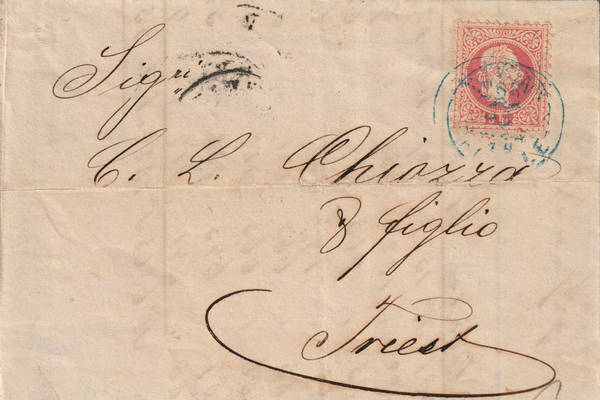 Sigri
C. L. Chiozza
& figlio
Triest